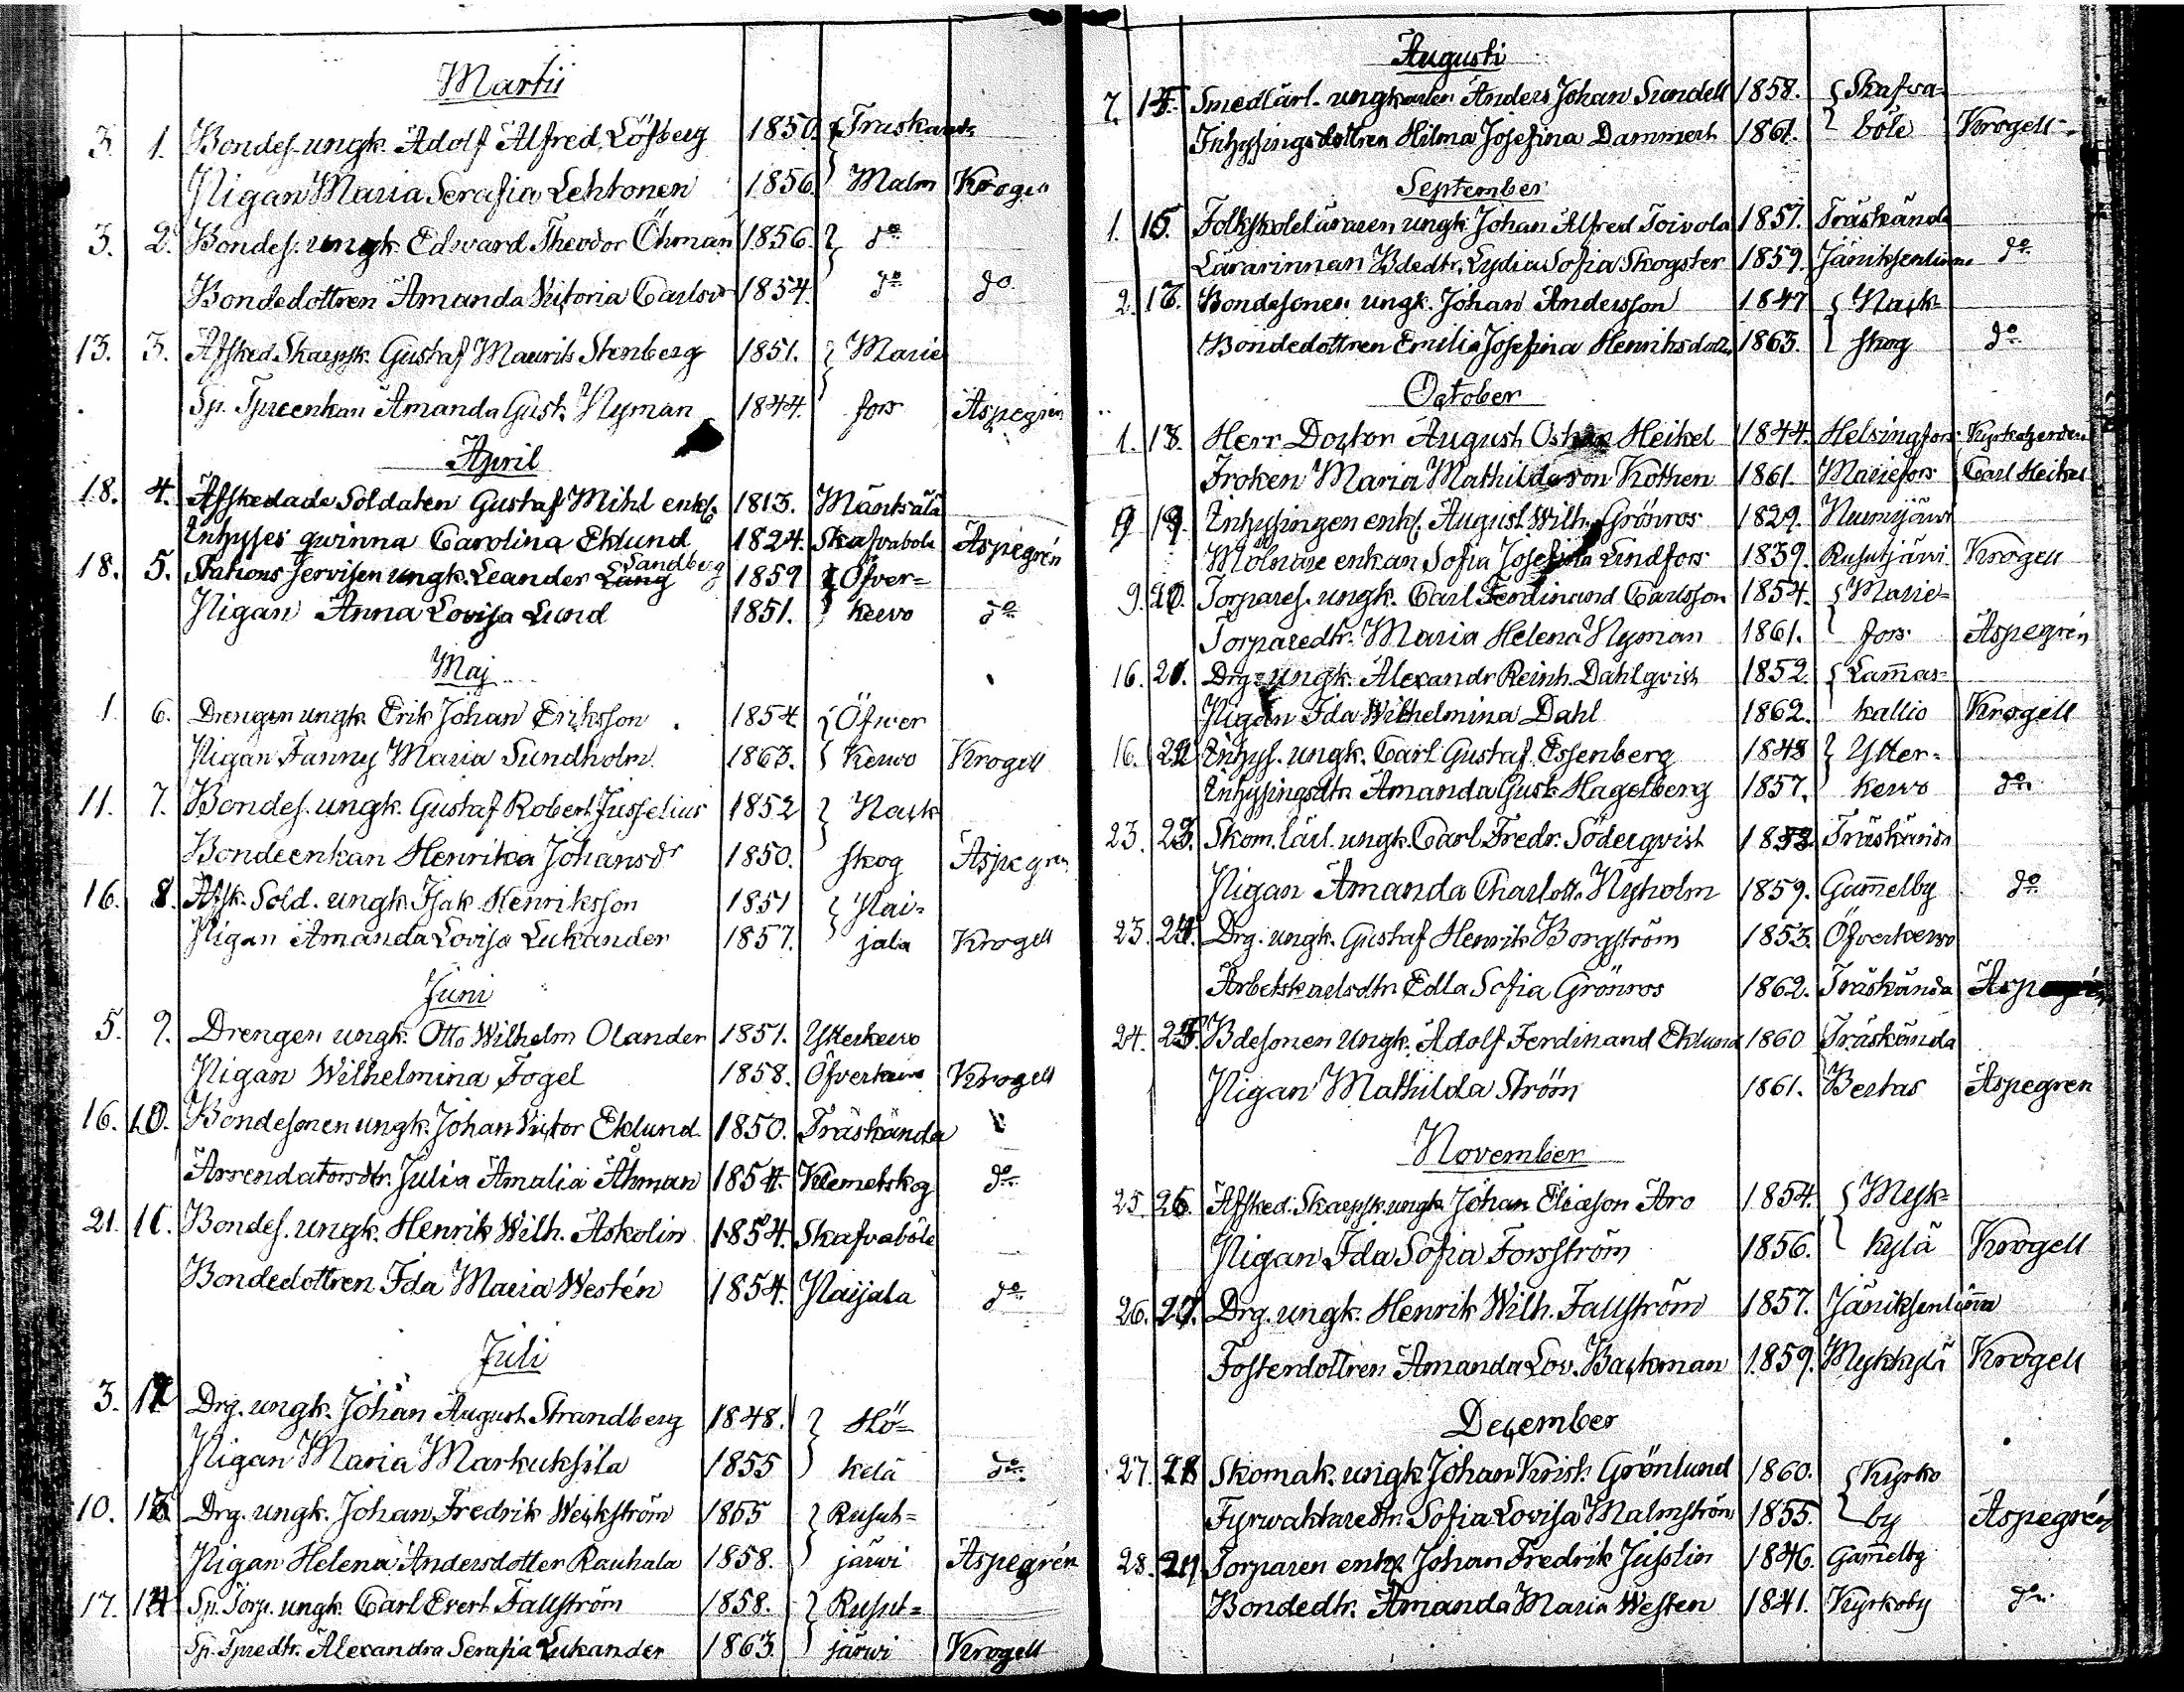 Martii
3. 1. Bondes. ungk. Adolf Alfred Löfberg 1850. Träskända
Pigan Maria Serafia Lehtonen 1856. Malm Krogell
3. 2. Bondes. ungk. Edward Theodor Öhman 1856. do
Bondedottren Amanda Victoria Carlsdr 1854. do do
13. 3. Afsked. Skarpsk. Gustaf Maurits Stenberg 1851. Marie
Sp. Tpreenkan Amanda Gust. Nyman 1844. fors Aspegrén
April
18. 4. Afskedade Soldaten Gustaf Mihl enkl. 1813. Mäntsälä
Inhyses qwinna Carolina Eklund 1824. Skafvaböle Aspegrén
Sandberg
18. 5. Stations servisen ungk. Leander Lång 1859 Öfver=
Pigan Anna Lovisa Lund 1851. kervo do
Maj
1. 6. Drengen ungk. Erik Johan Eriksson 1854. Öfwer
Pigan Fanny Maria Sundholm 1863. Kerwo Krogell
11. 7. Bondes. ungk. Gustaf Robert Jusselius 1852 Nack
Bondeenkan Henrika Johansdr 1850. skog Aspegren
16. 8. Afsk. Sold. ungk. Isak Henriksson 1851 Pai=
Pigan Amanda Lovisa Lukander 1857. jala Krogell
Juni
5. 9. Drengen ungk. Otto Wilhelm Olander 1851. Ytterkerwo
Pigan Wilhelmina Fogel 1858. Öfverkerwo Krogell
16. 10. Bondesonen ungk. Johan Victor Eklund. 1850. Träskända
Arrendatorsdtr. Julia Amalia Åhman 1854. Klemetskog do
21. 11. Bondes. ungk. Henrik Wilh. Askolin 1854. Skafvaböle
Bondedottren Ida Maria Westén 1854. Paijala do
Juli
3. 12 Drg. ungk. Johan August Strandberg 1848. Hö=
Pigan Maria Markuksila 1855 kelä do
10. 13 Drg. ungk. Johan Fredrik Weckström 1855 Rusut=
Pigan Helena Andersdotter Rauhala 1858. järwi Aspegrén
17. 14 Sp. Torp. ungk. Carl Evert Fallström 1858. Rusut=
Sp. Tpredtr. Alexandra Serafia Lukander 1863. järwi Krogell
Augusti
7. 15. Smedlärl. ungkarlen Anders Johan Sundell 1858. Skafva=
Inhysingsdottren Hilma Josefina Dammert 1861. böle Krogell
September
1. 16. Folkskoleläraren ungk. Johan Alfred Toivola 1857. Träskända
Lärarinnan Bdedtr. Lydia Sofia Skogster 1859. Jäniksenlinna do
2. 17. Bondesonen ungk. Johan Andersson 1847 Nack=
Bondedottren Emilia Josefina Henriksdotr. 1863. skog do
October
1. 18. Herr Doctor August Oskar Heikel 1844. Helsingfors Kyrkoherden
Fröken Maria Mathilda von Kothen 1861. Mariefors Carl Heikel
9 19. Inhysingen enkl. August Wilh. Grönros 1829. Numisjärwi
Mölnare enkan Sofia Josefina Lindfors 1839. Rusutjärwi Krogell
9. 20. Torpares. ungk. Carl Ferdinand Carlsson 1854. Marie=
Torparedtr. Maria Helena Nyman 1861. fors Aspegrén
16. 21. Drg. ungk. Alexandr Reinh. Dahlqvist 1852. Lam̄as=
Pigan Ida Wilhelmina Dahl 1862. kallio Krogell
16. 22 Inhys. ungk. Carl Gustaf Essenberg 1848 Ytter=
Inhysingsdtr. Amanda Gust. Hagelberg 1857. kerwo do
23. 23. Skom. lärl. ungk. Carl Fredr. Söderqvist Träskända
Pigan Amanda Charlotta Nyholm 1859. Gam̄elby do
23. 24. Drg. ungk. Gustaf Henrik Borgström 1853. Öfverkerwo
Arbetskarlsdtr. Edla Sofia Grönros 1862. Träskända Aspegrén
24. 25. Bdesonen Ungk. Adolf Ferdinand Eklund 1860 Träskända
Pigan Mathilda Ström 1861. Bertas Aspegren
November
25. 26. Afsked. Skarpsk. ungk. Johan Eliasson Aro 1854. Myk=
Pigan Ida Sofia Forsström 1856. kylä Krogell
26. 27. Drg. ungk. Henrik Wilh. Fallström 1857. Jäniksenlin̄a
Fosterdottren Amanda Lov. Backman 1859. Mykkylä Krogell
December
27. 28 Skomak. ungk. Johan Krist. Grönlund 1860. Kyrko
Fyrwaktaredtr. Sofia Lovisa Malmström 1855. by Aspegrén
28. 29 Torparen enkl. Johan Fredrik Jusslin 1846. Gam̄elby
Bondedtr. Amanda Maria Westen 1841. Kyrkoby do